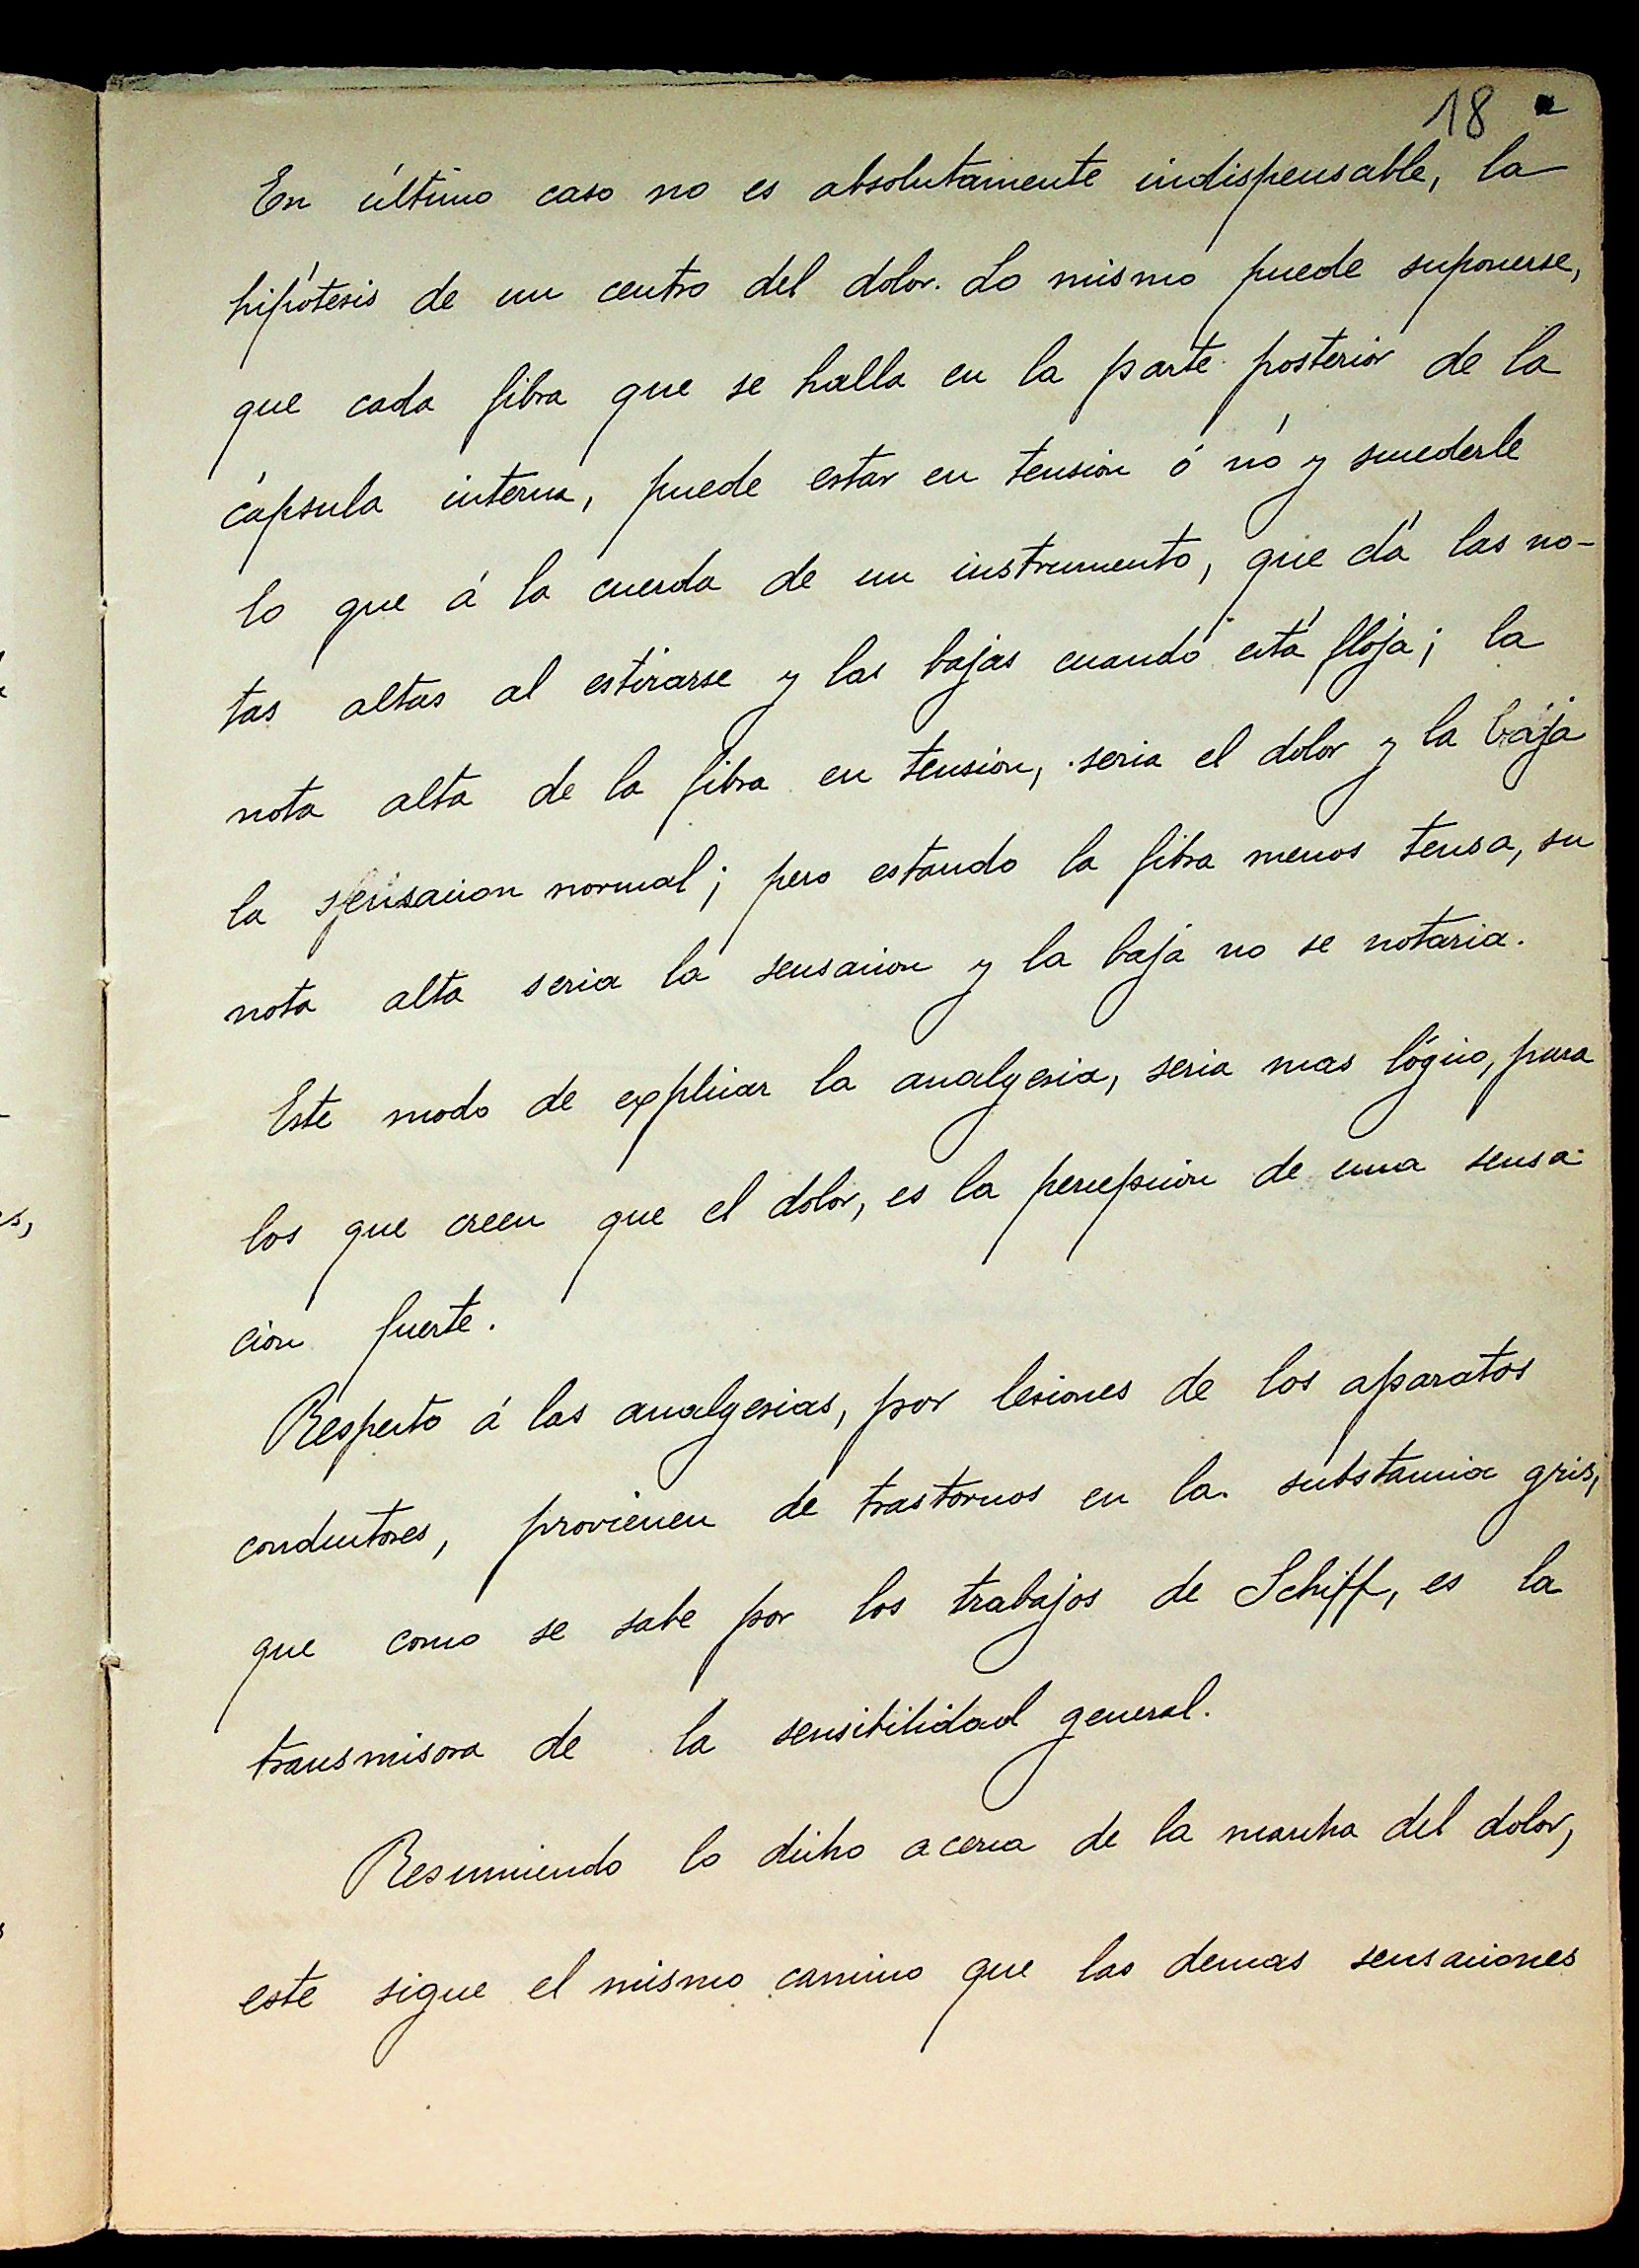 18
En último caso no es absolutamente indispensable, la
hipótesis de un centro del dolor. Lo mismo puede suponerse,
que cada fibra que se halla en la parte posterior de la
cápsula interna, puede estar en tensión ó nó y sucederle
lo que á la cuerda de un instrumento, que dá las no-
tas altas al estirarse y las bajas cuando está floja; la
nota alta de la fibra en tensión, seria el dolor y la baja
la sensacion normal; pero estando la fibra menos tensa, su
nota alta seria la sensacion y la baja no se notaria.
Este modo de explicar la analgesia, seria mas lógico, para
los que creen que el dolor, es la percepción de una sensa-
ción fuerte.
Respecto á las analgesias, por lesiones de los aparatos
conductores, provienen de trastornos en la substancia gris,
que como se sabe por los trabajos de Schiff, es la
transmisora de la sensibilidad general.
Resumiendo lo dicho acerca de la marcha del dolor,
este sigue el mismo camino que las demas sensaciones